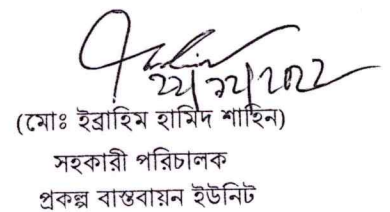 ২২/১২/২০২২
(মোঃ ইব্রাহিম হামিদ শাহিন)
সহকারী পরিচালক
প্রকল্প বাস্তবায়ন ইউনিট